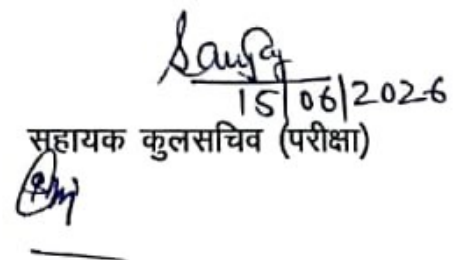 Sanjay
15/06/2026
सहायक कुलसचिव (परीक्षा)